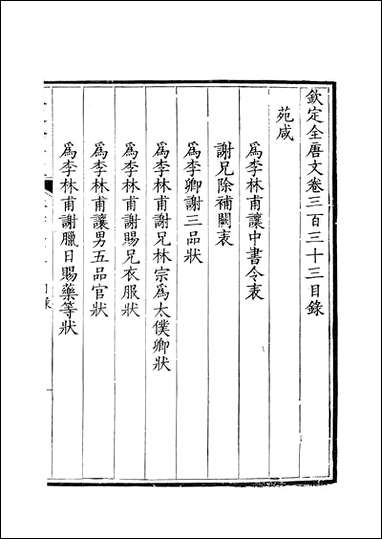 欽定全唐文卷三百三十三目錄
苑咸
為李林甫讓中書令表
謝兄除補闕表
為李卿謝三品狀
為李林甫謝兄林宗為太僕卿狀
為李林甫謝賜兄衣服狀
為李林甫讓男五品官狀
為李林甫謝臘日賜藥等狀
目錄